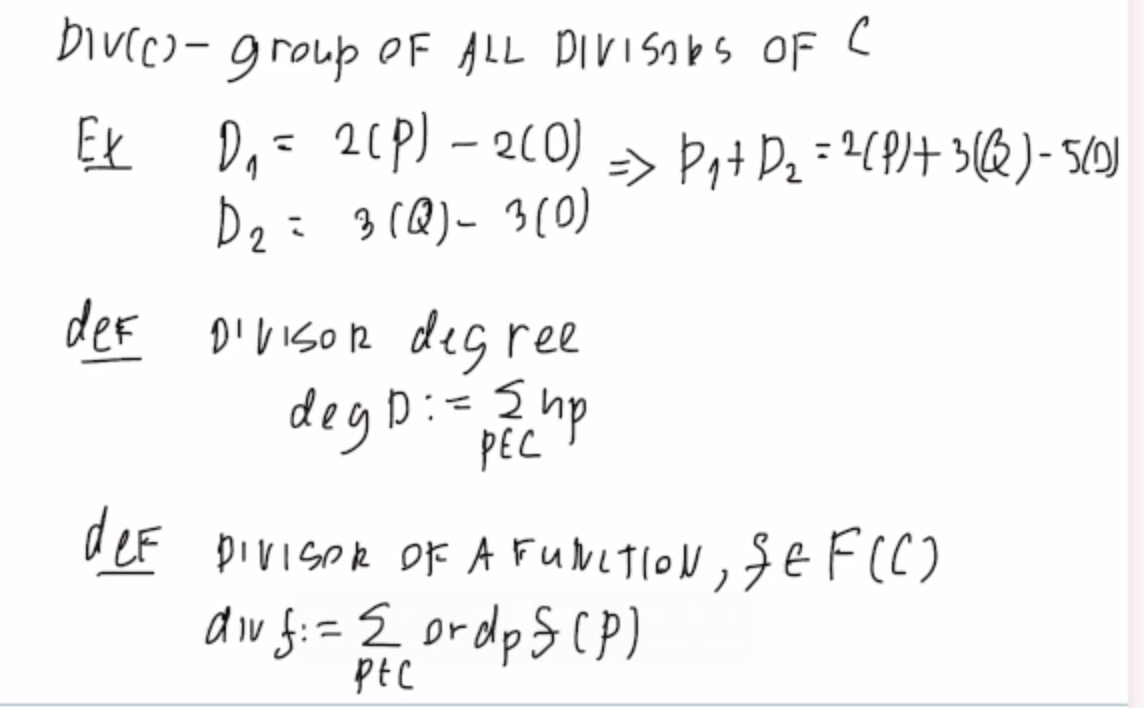 Div(C) - group OF ALL DIVISORS OF C
Ex D₁ = 2(P) - 2(O) => D₁ + D₂ = 2(P) + 3(Q) - 5(O)
D₂ = 3(Q) - 3(O)
def DIVISOR degree
deg D := Σ nₚ
P∈C
def DIVISOR OF A FUNCTION, f ∈ F(C)
div f := Σ ordₚ f (P)
P∈C